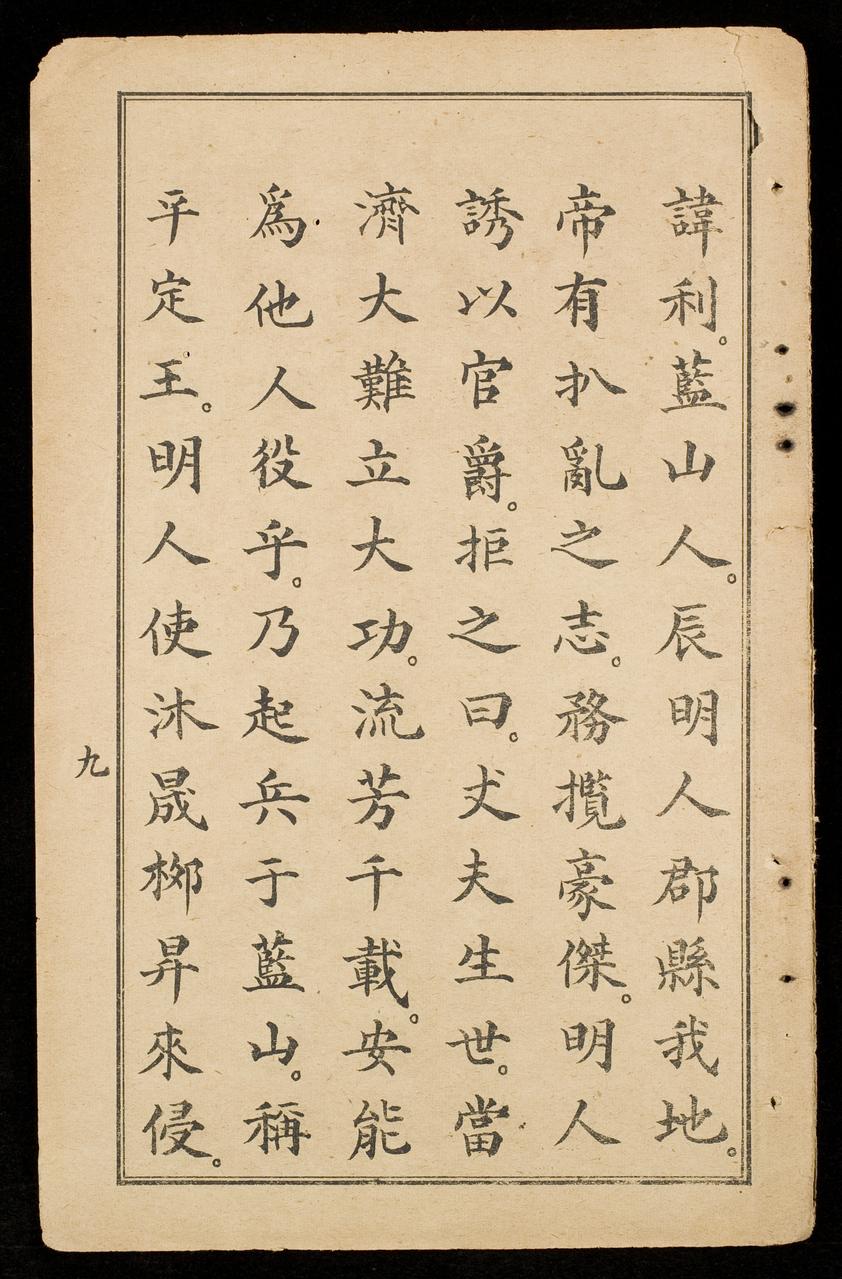 諱利。藍山人。辰明人郡縣我地。
帝有扒亂之志。務攬豪傑。明人
誘以官爵。拒之曰。丈夫生世。當
濟大難立大功。流芳千載。安能
爲他人役乎。乃起兵于藍山。稱
平定王。明人使沐晟栁昇來侵。
九